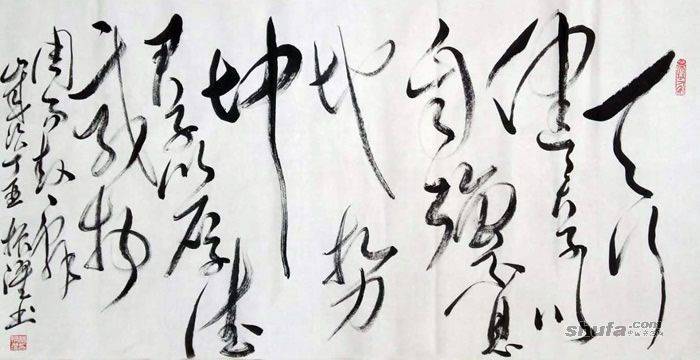 天行
健君子以
自強不息
地势
坤
君子以厚德
载物
周易
歲次丁
书
shufa.com